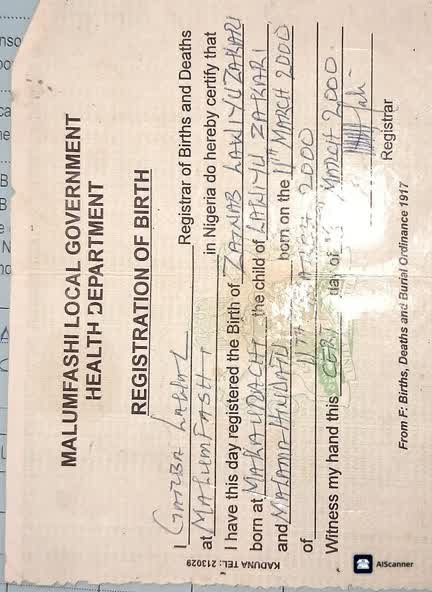 MALUMFASHI LOCAL GOVERNMENT
HEALTH DEPARTMENT
REGISTRATION OF BIRTH
I GARBA LAWAL Registrar of Births and Deaths
at MALUMFASHI in Nigeria do hereby certify that
I have this day registered the Birth of ZAINAB LAWIYU ZAKARI
born at MAKAURACHI the child of LAWIYU ZAKARI
and MALAMA HINDATU born on the 11TH MARCH 2000
of 11TH MARCH 2000
Witness my hand this day of MARCH 2000.
Registrar
From F: Births, Deaths and Burial Ordinance 1917
KADUNA TEL: 213029
AIScanner